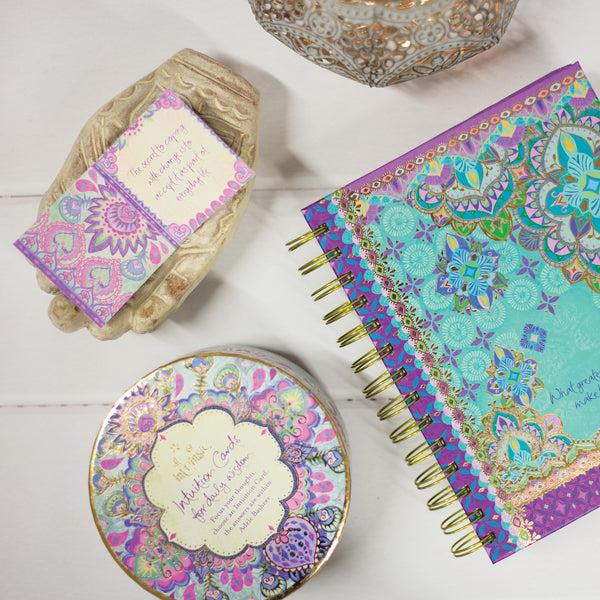 The secret to coping
with change is to
accept it as part of
everyday life
intrinsic
Intuition Cards
for daily wisdom
Focus your thoughts,
choose an Intuition Card,
the answers are within
Adèle Basheer
What great
make